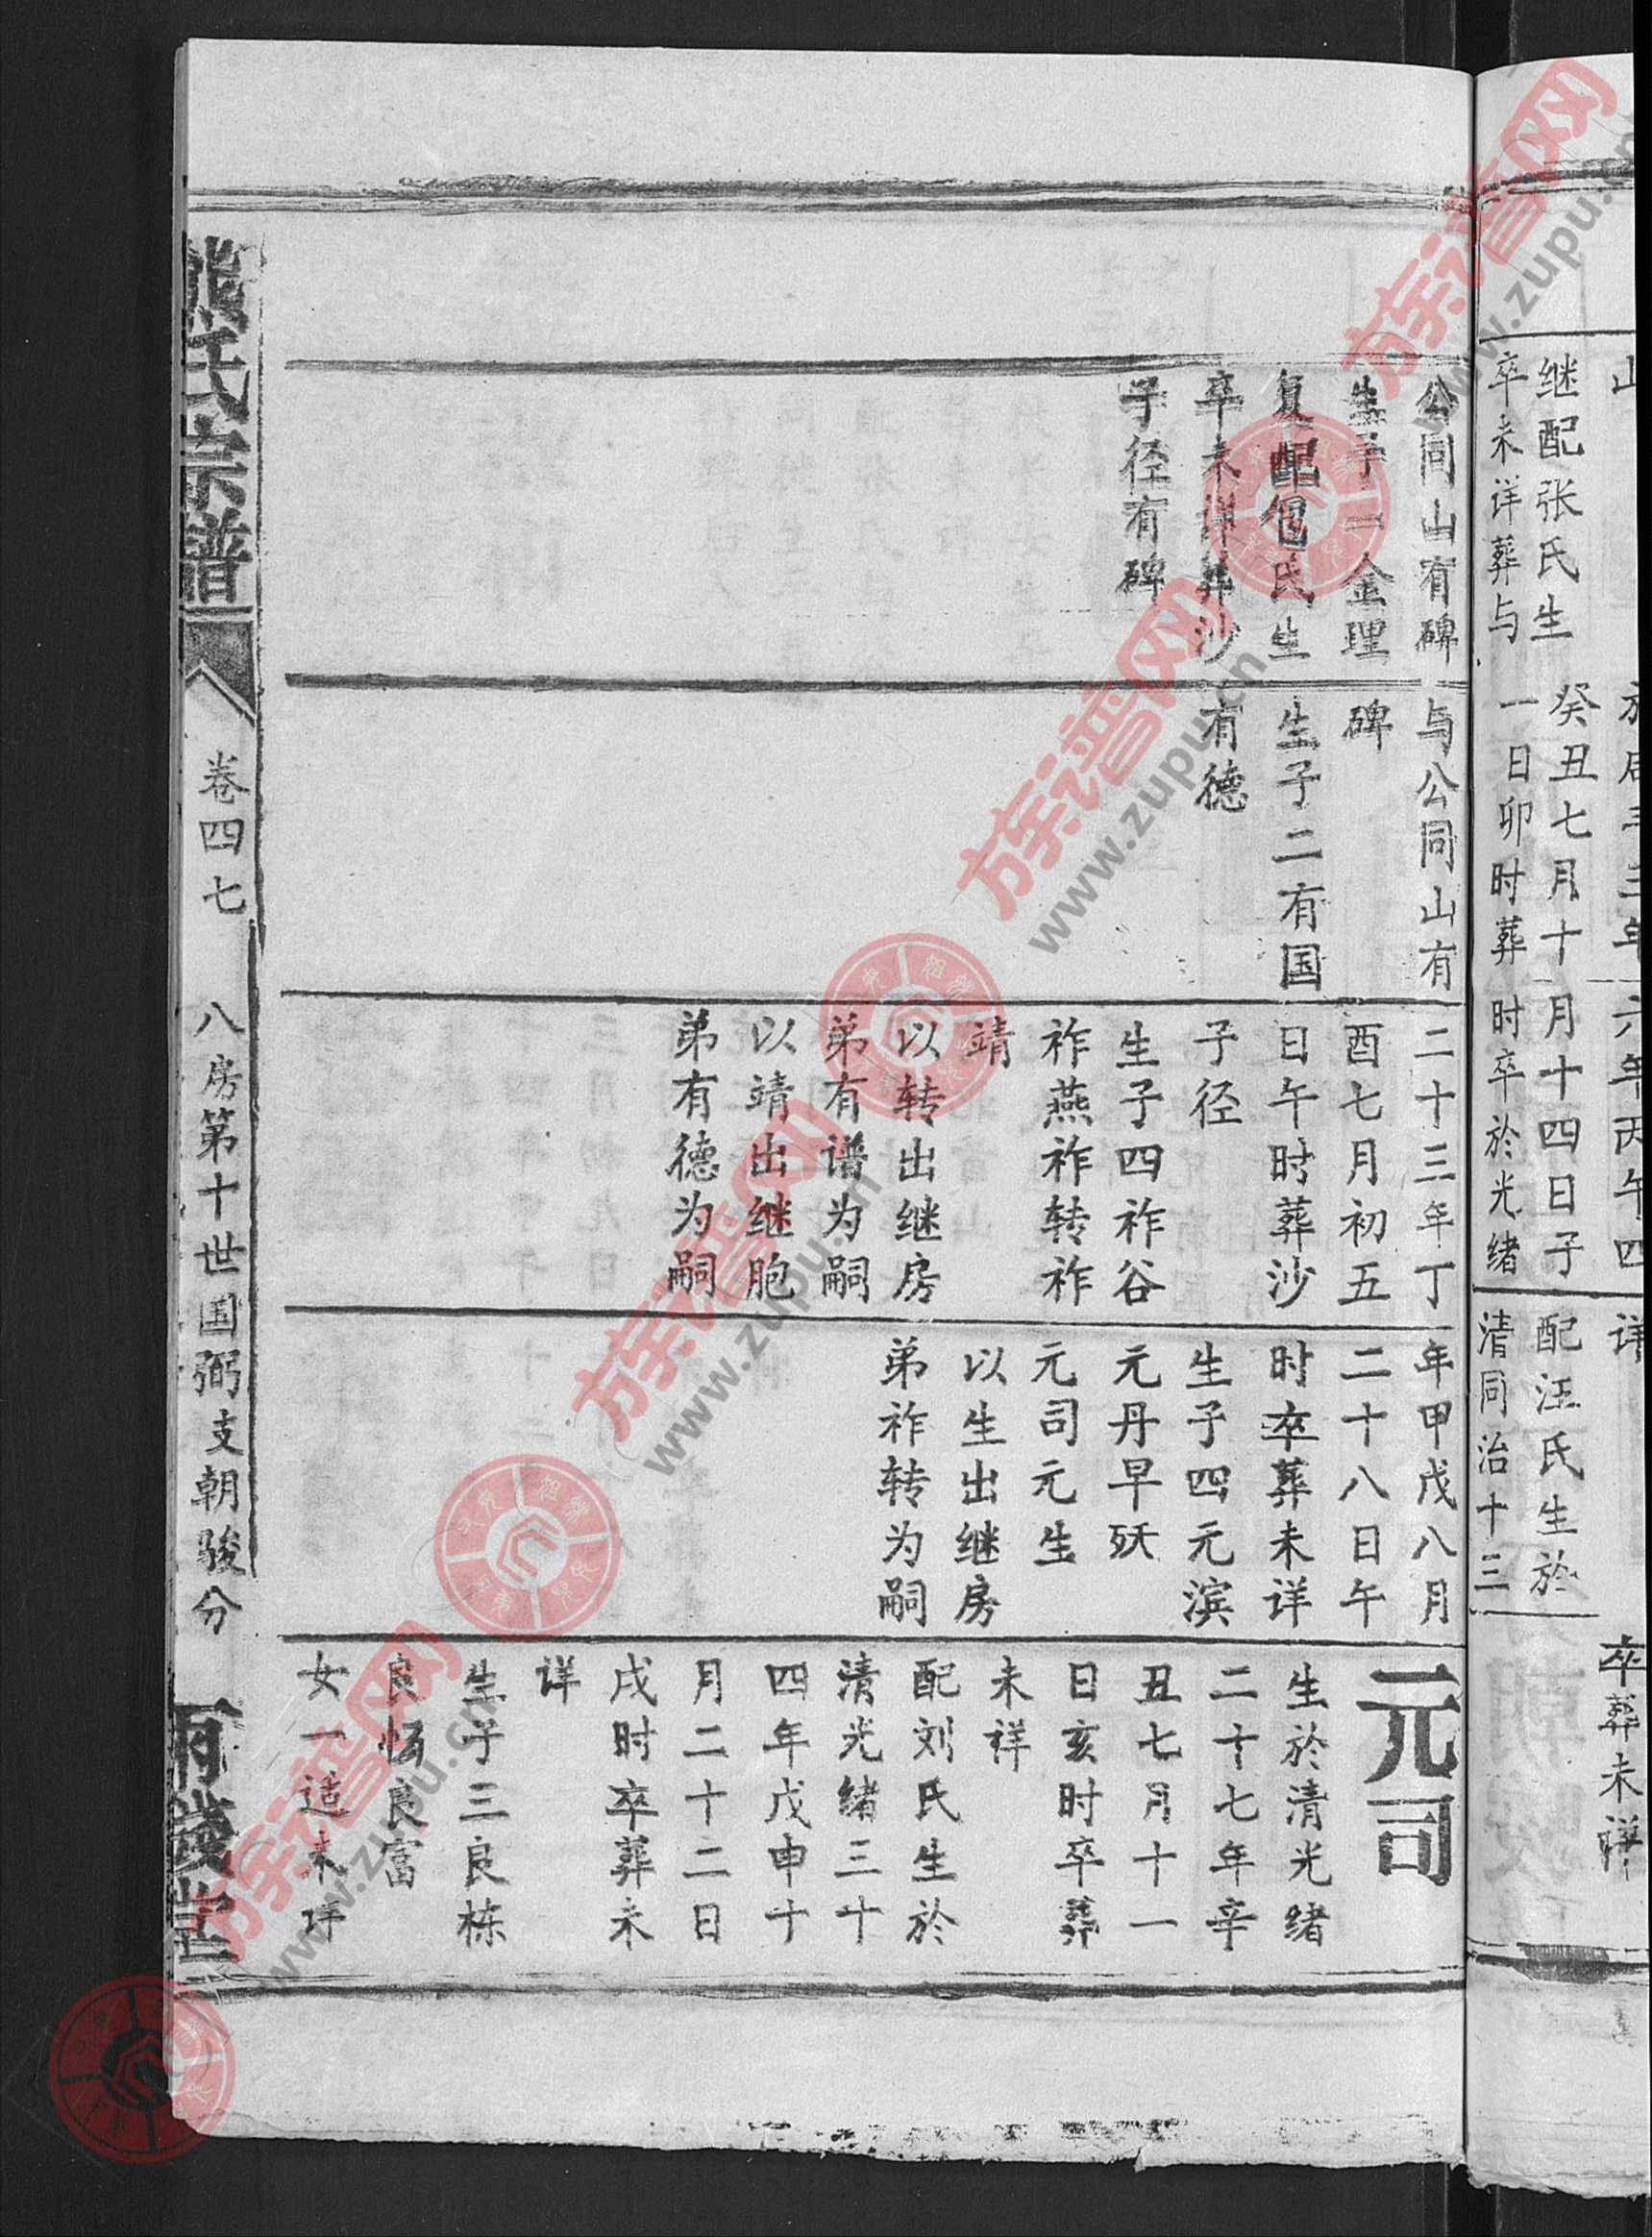 继配张氏生
卒未详葬与
癸丑七月十
一日卯时葬
六年丙午四
月十四日子
时卒於光绪
详
配汪氏生於
清同治十三
卒葬未详
公同山有碑
生子一金理
复配包氏生
卒未详葬沙
子径有碑
与公同山有
碑
生子二有国
有德
二十三年丁
酉七月初五
日午时葬沙
子径
生子四祚谷
祚燕祚转祚
靖
以转出继房
弟有谱为嗣
以靖出继胞
弟有德为嗣
年甲戊八月
二十八日午
时卒葬未详
生子四元滨
元丹早殀
元司元生
以生出继房
弟祚转为嗣
元司
生於清光绪
二十七年辛
丑七月十一
日亥时卒葬
未祥
配刘氏生於
清光绪三十
四年戊申十
月二十二日
戌时卒葬未
详
生子三良栋
良恢良富
女一适未详
熊氏宗谱
卷四七
八房第十世国弼支朝骏分
族谱网
www.zupu.cn